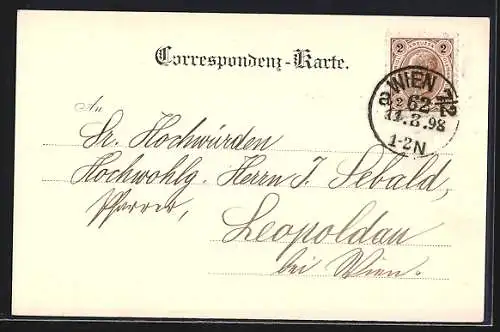 Correspondenz-Karte.
2 KREUZER 2
WIEN 7/2
62
11.3.98
1-2N
An
Sr. Hochwürden
Hochwohlg. Herrn J. Sebald,
Pfarrer,
Leopoldau
bei Wien.